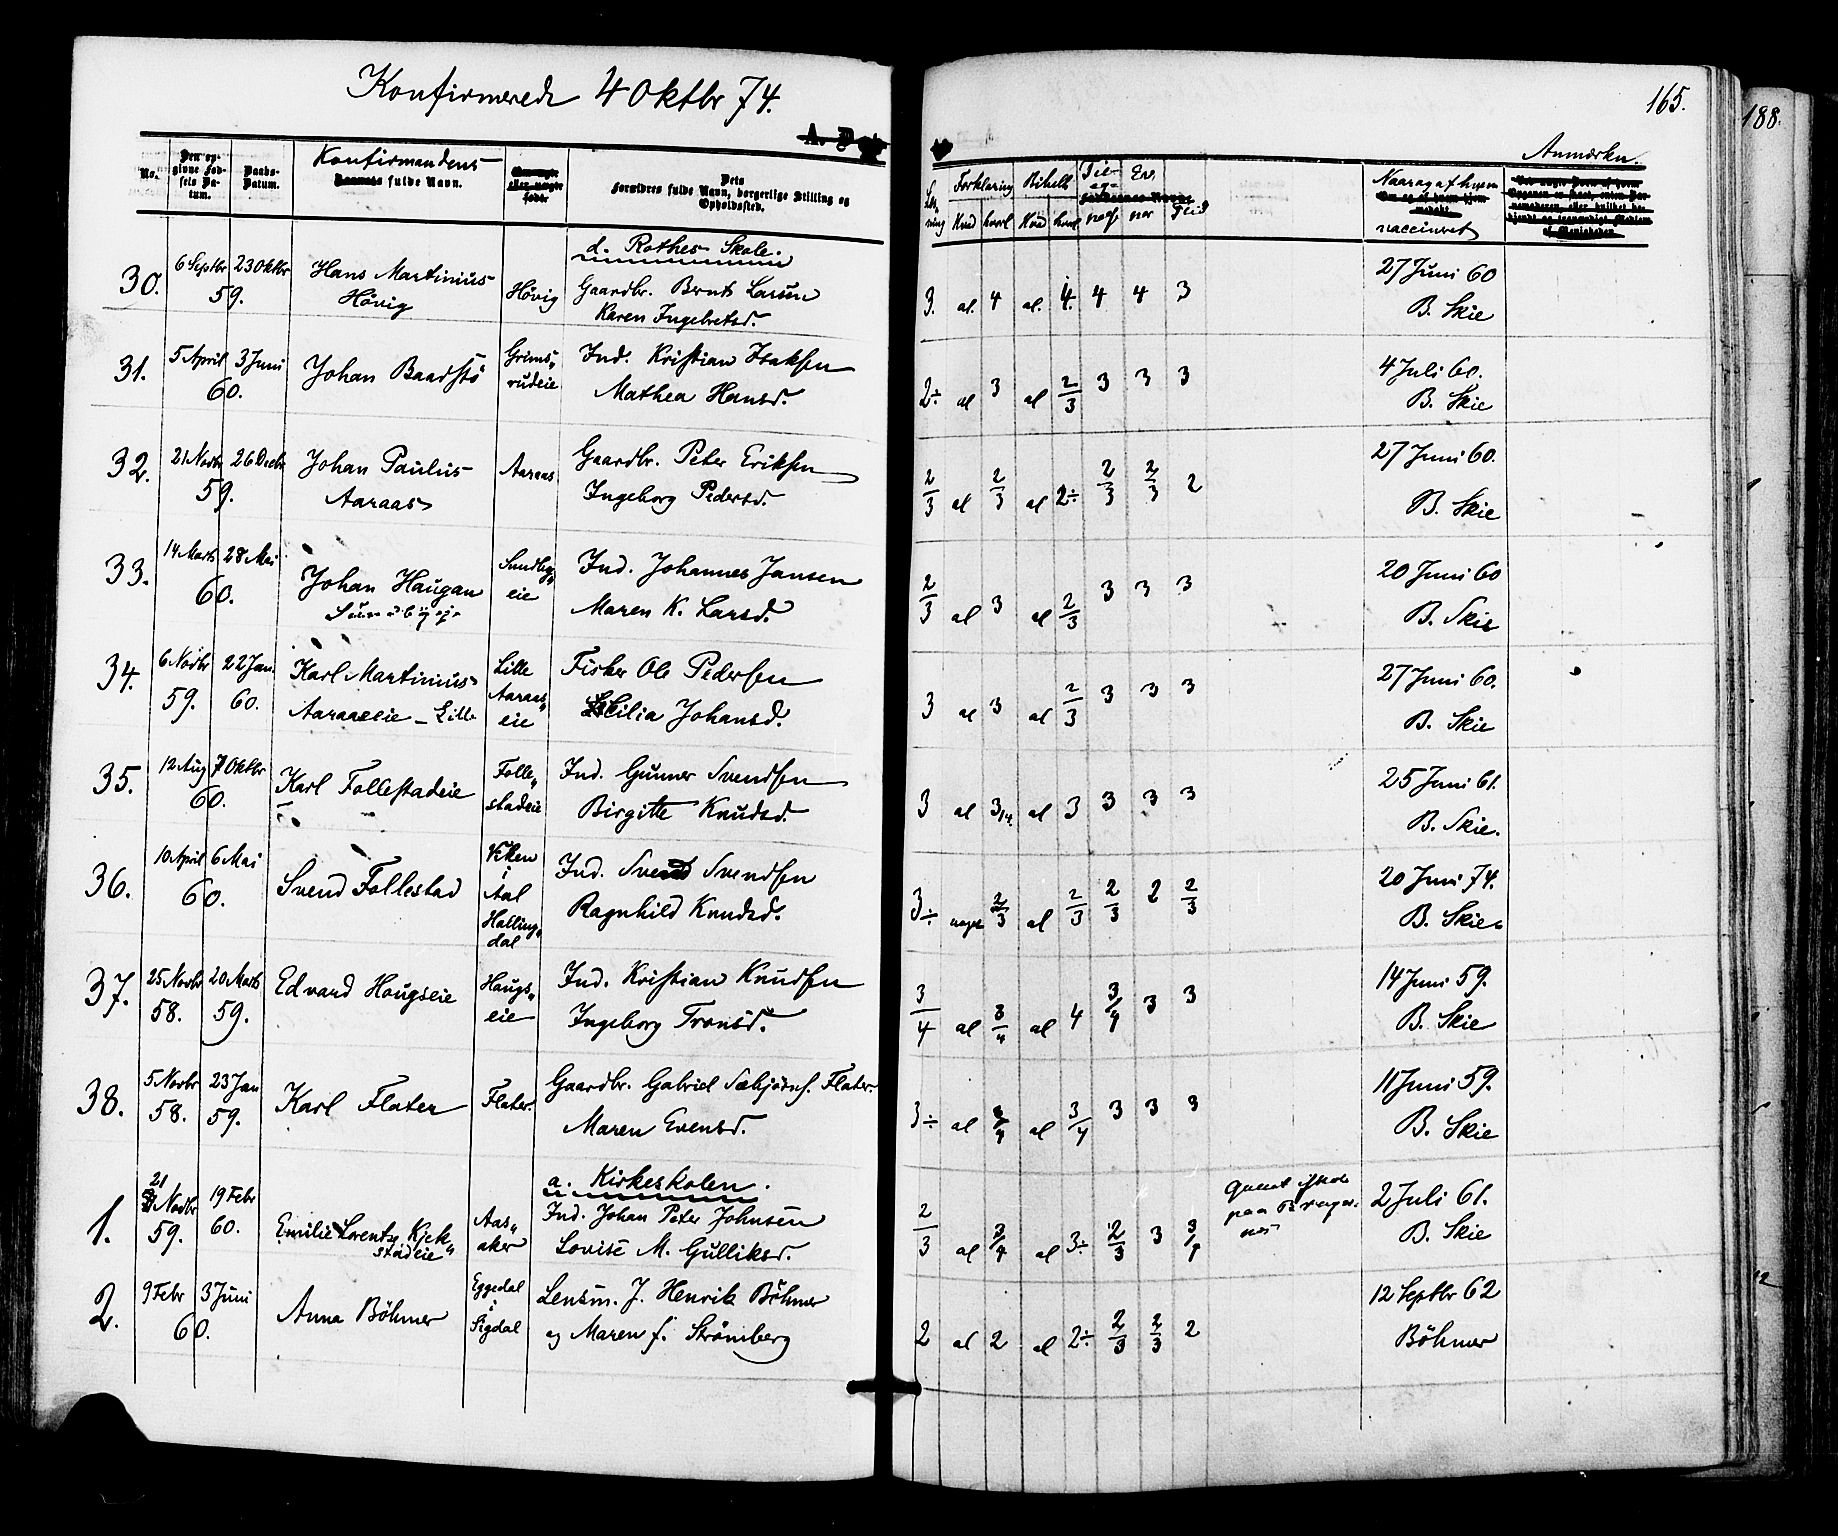 Konfirmerede 4 Oktbr 74.
165.
188.
No.
Den op-
givne Fød-
sels Da-
tum.
Daabs-
Datum.
Konfirmandens
fulde Navn.
eller uægte
fødte
Dets
Forældres fulde Navn, borgerlige Stilling og
Opholdssted.
Forklaring
Kvad hvorl
Kvad hvorl
Ev.
ner
Flid
Naar og af hvem
vaccineret
Anmærkn.
d. Rothes Skole.
30. 6 Septbr 59. 23 Oktbr Hans Martinius Høvig Høvig Gaardbr. Bernt Larsen
Karen Ingebretsd.
3. al. 4 al. 4. 4 4 3 27 Juni 60
B. Skie
31. 5 April 3 Juni 60. Johan Baadstø Grims„rudeie Ind. Kristian Isaksen
Mathea Hansd.
2÷ al 3 al 2/3 3 3 3 4 Juli 60.
B. Skie
32. 21 Novbr 26 Decbr 59. Johan Paulus Aaraas Aaraas Gaardbr. Peter Eriksen
Ingeborg Pedersd.
2/3 al 2/3 al 2÷ 2/3 2/3 2 27 Juni 60.
B. Skie
33. 14 Marts 28 Mai 60. Johan Haugan Sundbyeie Ind. Johannes Jansen
Maren K. Larsd.
2/3 al 3 al 2/3 3 3 3 20 Juni 60
B. Skie
34. 6 Novbr 59. 22 Jan. 60. Karl Martinius Aaraaseie - Lille Lille Aaraas„eie Fisker Ole Pedersen
Cecilia Johansd.
3 al 3 al 2/3 3 3 3 27 Juni 60.
B. Skie
35. 12 Aug 7 Oktbr 60. Karl Follestadeie Folle„stadeie Ind. Gunner Svendsen
Birgitte Knudsd.
3 al 3/4. al 3 3 3 3 25 Juni 61.
B. Skie.
36. 10 April 6 Mai 60. Svend Follestad Viken i Aal Halling„dal Ind. Svend Svendsen
Ragnhild Knudsd.
3÷ noget 2/3 al 2/3 2/3 2 2/3 20 Juni 74.
B. Skie
37. 25 Novbr 58. 20 Marts 59. Edvard Hougseie Haugs„eie Ind. Kristian Knudsen
Ingeborg Tronsd.
3/4 al 3/4 al 4 3/4 3 3 14 Juni 59.
B. Skie
38. 5 Novbr 58. 23 Jan 59. Karl Flater Flater. Gaardbr. Gabriel Sæbjørns. Flater.
Maren Evensd.
3÷ al 3/4 al 3/4 3 3 3 11 Juni 59.
B. Skie
a. Kirkeskolen.
1. 21 Novbr 59. 19 Febr 60. Emilie Lorentze Kjek„stadeie Aas„aker Ind. Johan Peter Johnsen
Lovise M. Gulliksd.
2/3 al 3/4 al 3÷ 2/3 3 3/4 2 Juli 61.
B. Skie
2. 9 Febr 3 Juni 60. Anna Böhmer Eggedal i Sigdal Lensm. J. Henrik Böhmer
og Maren f. Strömberg
2 al 2 al 2÷ 2/3 2/3 2 12 Septbr 62
Böhmer